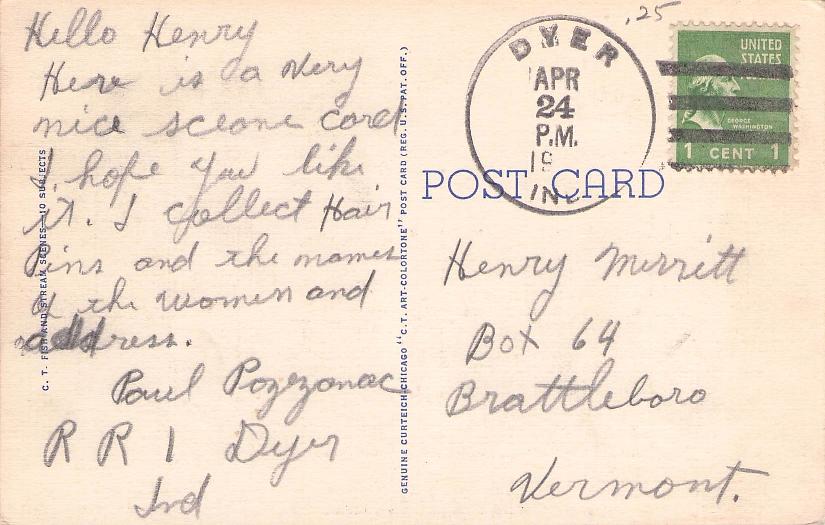 Hello Henry
Here is a very
nice sceane card
I hope you like
it. I collect Hair
Pins and the names
of the women and
address.
Paul
R R 1 Dyer
Ind
C. T. FISH AND STREAM SCENES—10 SUBJECTS
GENUINE CURTEICH-CHICAGO "C. T. ART-COLORTONE" POST CARD (REG. U. S. PAT. OFF.)
.25
DYER
APR
24
P.M.
19
IND
UNITED
STATES
GEORGE
WASHINGTON
1 CENT 1
POST CARD
Henry Merritt
Box 64
Brattleboro
Vermont.